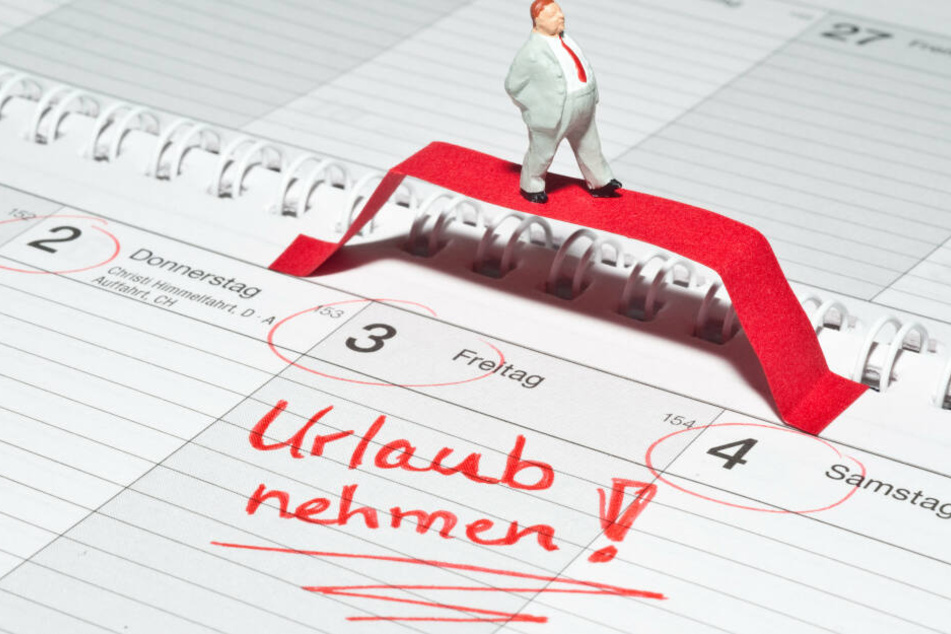 27
152
2
Donnerstag
Christi Himmelfahrt, D · A
Auffahrt, CH
153
3
Freitag
Urlaub
nehmen!
154
4
Samstag